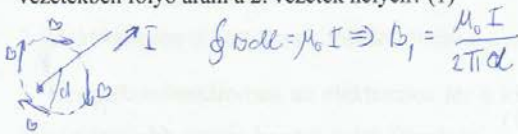 vezetékben folyó áram a 2. vezeték helyén? (1)
B I ∮Bdl = μ₀ I ⇒ B₁ = μ₀ I / 2πd
B d B
B